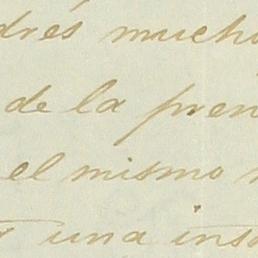 mucho
de la pren
el mismo
una ins